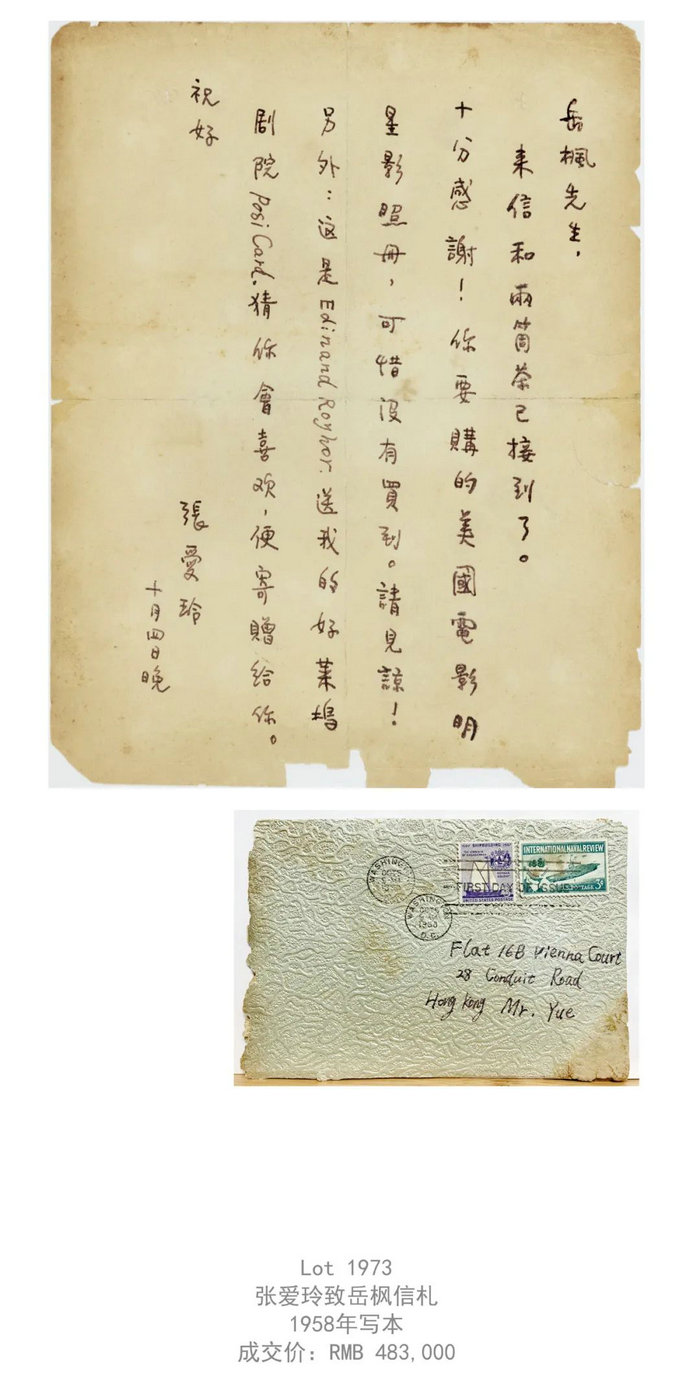 岳楓先生，
来信和兩筒茶已接到了。
十分感謝！你要購的美國電影明
星影照冊，可惜沒有買到。請見諒！
另外：这是Edinand Royhor.送我的好莱塢
剧院PosiCard.猜你會喜欢，便寄赠给你。
祝好
張愛玲
十月四日晚
WASHINGTON
WASHINGTON
D.C.
SHIPBUILDING
UNITED STATES POSTAGE
INTERNATIONAL NAVAL REVIEW
POSTAGE 3¢
FIRST DAY OF ISSUE
Flat 16B Vienna Court
28 Conduit Road
Hong Kong Mr. Yue
Lot 1973
张爱玲致岳枫信札
1958年写本
成交价：RMB 483,000